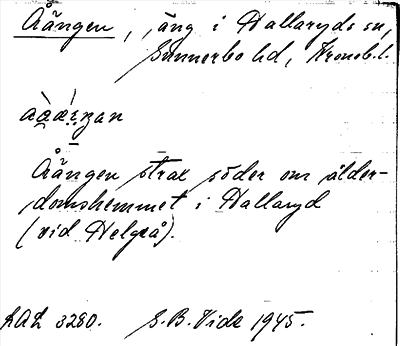 Åängen, äng i Hallaryds sn,
Sunnerbo hd, Kronob. l.
Åängen strax söder om ålder-
domshemmet i Hallaryd
(vid Helgeå).
LAL 3280. S. B. Vide 1945.